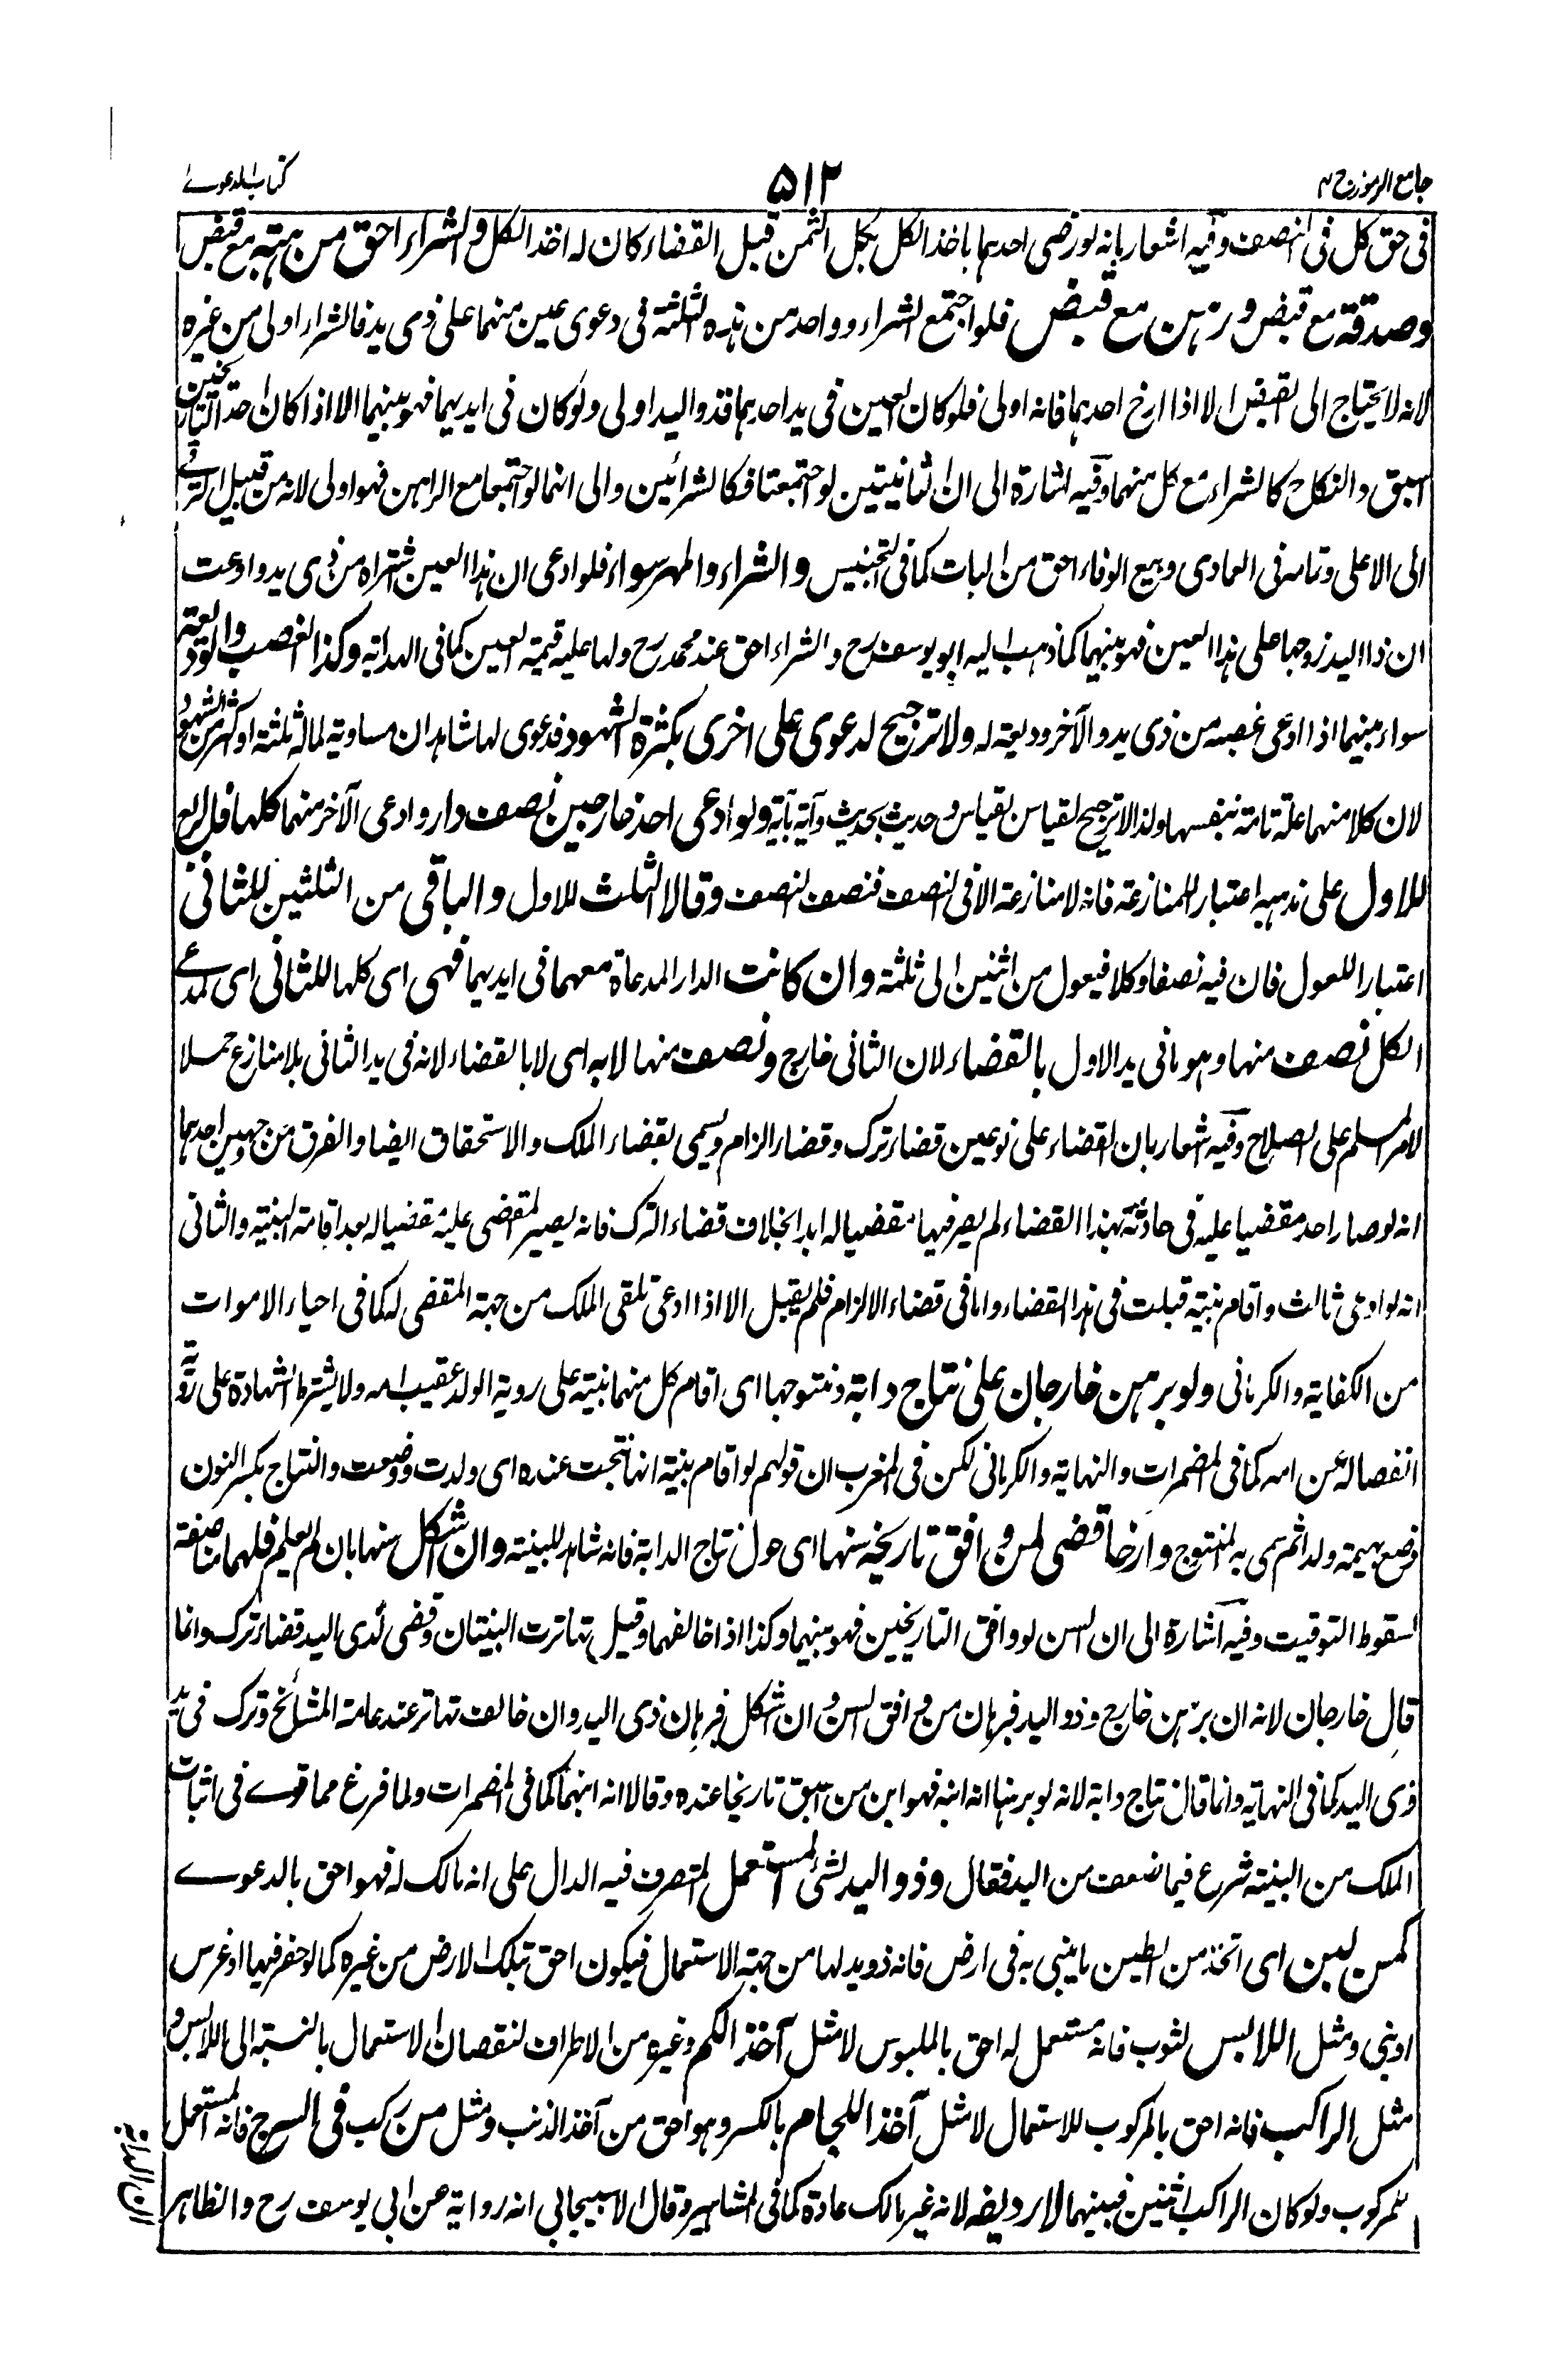 جامع الرموز ج ٢
٥١٢
كتاب الدعوى
فى حق كل فى النصف وفيه اشعار بانه لو رضى احدهما باخذ الكل بكل الثمن قبل القضاء كان له اخذ الكل والشراء احق من هبته مع قبض
وصدقة مع قبض ورهن مع قبض فلو اجتمع الشراء وواحد من هذه الثلثة فى دعوى عين منهما على ذى يد فالشراء اولى من غيره
لانه لا يحتاج الى القبض الا اذا ارخ احدهما فانه اولى فلو كان العين فى يد احدهما فذو اليد اولى ولو كان فى ايديهما فهو بينهما الا اذا كان احد التاريخين
اسبق والنكاح كالشراء مع كل منهما وفيه اشارة الى ان الثانيتين لو اجتمعتا فكالشرائين والى انهما لو اجتمعا مع الراهن فهو اولى لانه من قبيل الترقى
الى الاعلى وتمامه فى العمادى وبيع الوفاء احق من البات كما فى التجنيس والشراء والمهر سواء فلو ادعى ان هذا العين اشتراه من ذى يد وادعت
ان ذا اليد زوجها على هذا العين فهو بينهما كما ذهب اليه ابو يوسف رح والشراء احق عند محمد رح ولها عليه قيمة العين كما فى الهداية وكذا الغصب والوديعة
سواء بينهما اذا ادعى غصبه من ذى يد والآخر وديعة له ولا ترجيح لدعوى على اخرى بكثرة الشهود فدعوى لها شاهدان مساوية لما له ثلثة او اكثر من الشهود
لان كلا منهما علة تامة بنفسها ولذا لا ترجيح لقياس بقياس وحديث بحديث وآية بآية ولو ادعى احد خارجين نصف دار وادعى الآخر منهما كلها فالربع
للاول على مذهبه اعتبار للمنازعة فانه لا منازعة الا فى النصف فنصف النصف وقالا الثلث للاول والباقى من الثلثين للثانى
اعتبارا للعول فان فيه نصفا وكلا فيعول من اثنين الى ثلثة وان كانت الدار المدعاة معهما فى ايديهما فهى اى كلها للثانى اى لمدعى
الكل نصف منها وهو ما فى يد الاول بالقضاء لان الثانى خارج ونصف منها لا به اى لا بالقضاء لانه فى يد الثانى بلا منازع حملا
لامر المسلم على الصلاح وفيه اشعار بان القضاء على نوعين قضاء ترك وقضاء الزام ويسمى بقضاء الملك والاستحقاق ايضا والفرق من وجهين احدهما
انه لو صار احد مقضيا عليه فى حادثة بهذا القضاء لم يصر فيها مقضيا له ابدا بخلاف قضاء الترك فانه يصير المقضى عليه مقضيا له بعد اقامة البينة والثانى
انه لو ادعى ثالث واقام بينة قبلت فى هذا القضاء واما فى قضاء الالزام فلم يقبل الا اذا ادعى تلقى الملك من جهة المقضى له كما فى احياء الاموات
من الكفاية والكرمانى ولو برهن خارجان على نتاج دابة ومنتوجها اى اقام كل منهما بينة على روية الولد عقيب امه ولا يشترط الشهادة على روية
انفصاله عن امه كما فى المضمرات والنهاية والكرمانى لكن فى المغرب ان قولهم لو اقام بينة انها نتجت عنده اى ولدت ووضعت والنتاج بكسر النون
وضع بهيمة ولد اثم سمى به المنتوج وارخا قضى لمن وافق تاريخه سنها اى حول نتاج الدابة فانه شاهد للبينة وان اشكل سنها بان لم يعلم فلهما مناصفة
لسقوط التوقيت وفيه اشارة الى ان السن لو وافق التاريخين فهو بينهما وكذا اذا خالفهما وقيل تهاترت البينتان وقضى لذى اليد قضاء ترك وانما
قال خارجان لانه ان برهن خارج وذو اليد فبرهان من وافق السن وان اشكل فبرهان ذى اليد وان خالف تهاتر عند عامة المشائخ وترك فى يد
ذى اليد كما فى النهاية وانما قال نتاج دابة لانه لو برهنا انه ابنه فهو ابن من سبق تاريخا عنده وقالا انه ابنهما كما فى المضمرات ولما فرغ مما قوى فى اثبات
الملك من البينة شرع فيما ضعف من اليد فقال وذو اليد لشئ المستعمل المتصرف فيه الدال على انه مالك له فهو احق بالدعوى
كمن لبن اى اتخذ من الطين ما يبنى به فى ارض فانه ذو يد لها من جهة الاستعمال فيكون احق بتلك الارض من غيره كما لو حفر فيها او غرس
او بنى ومثل اللابس لثوب فانه مستعمل له احق بالملبوس لا مثل آخذ الكم وغيره من الاطراف لنقصان الاستعمال بالنسبة الى اللابس و
مثل الراكب فانه احق بالمركوب للاستعمال لا مثل آخذ اللجام بالكسر وهو احق من آخذ الذنب ومثل من ركب فى السرج فانه المستعمل
للمركوب ولو كان الراكب اثنين فبينهما لا رديفه لانه غير مالك عادة كما فى المشاهير وقال الاسبيجابى انه رواية عن ابى يوسف رح والظاهر